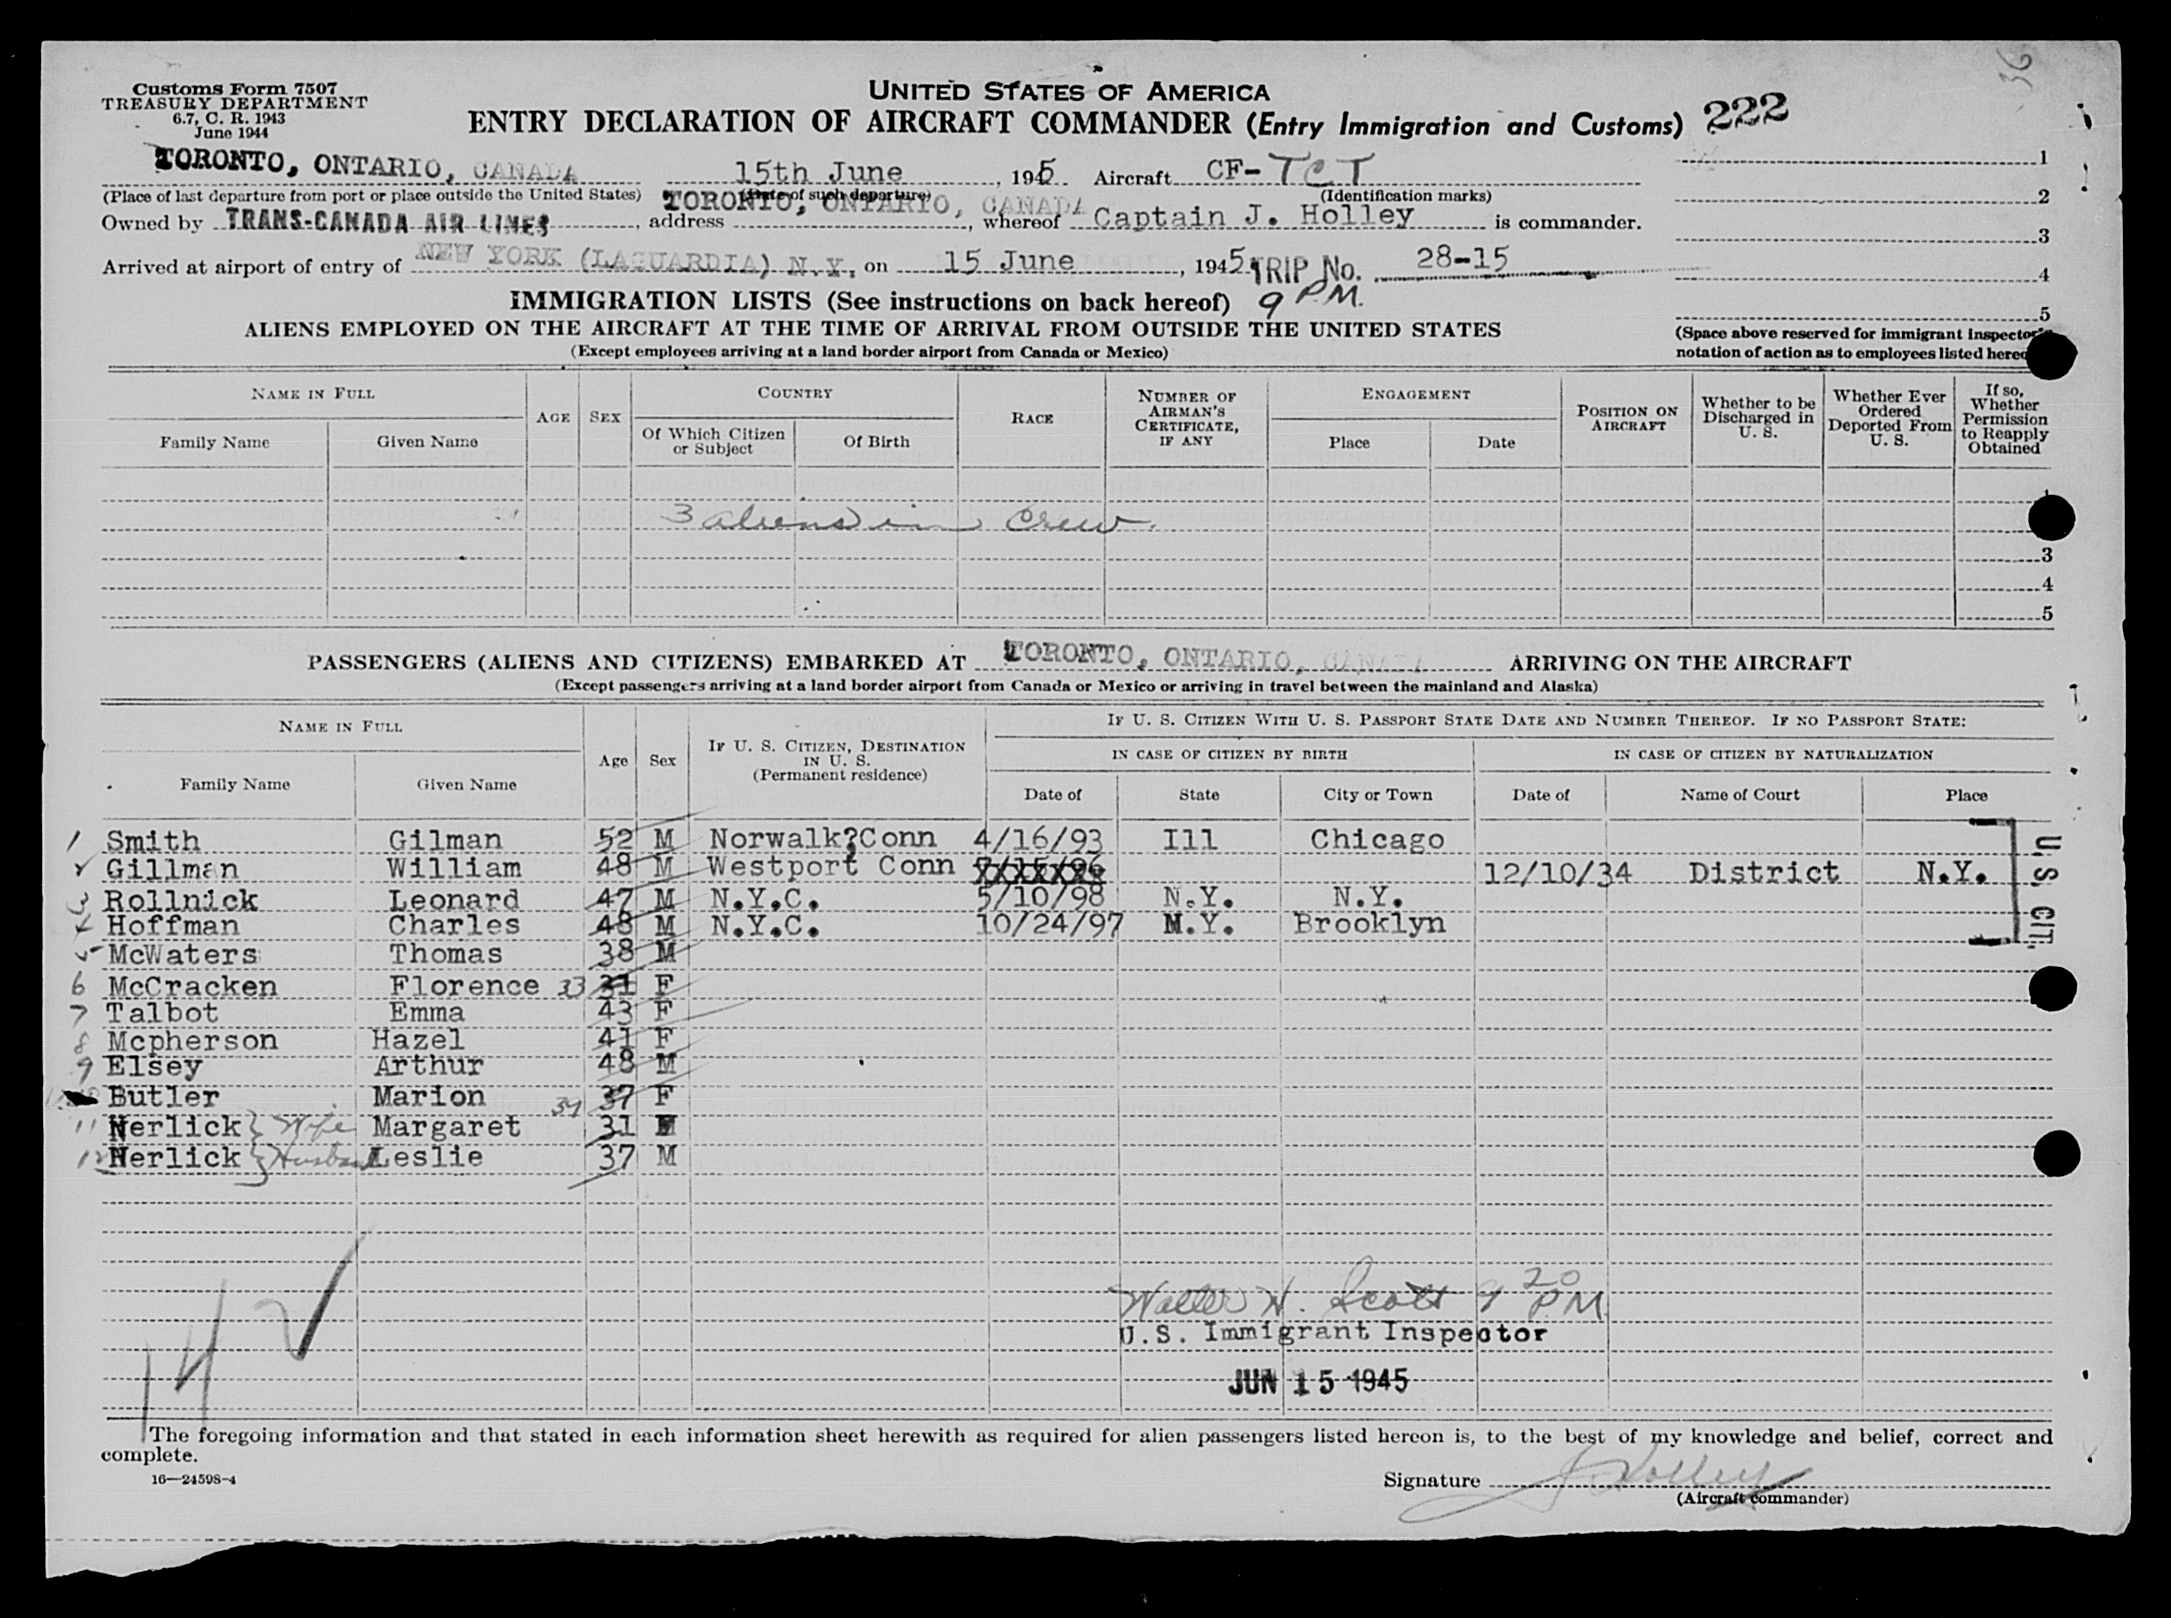 36
Customs Form 7507
TREASURY DEPARTMENT
6.7, C. R. 1943
June 1944
UNITED STATES OF AMERICA
ENTRY DECLARATION OF AIRCRAFT COMMANDER (Entry Immigration and Customs) 222
TORONTO, ONTARIO, CANADA 15th June, 1945 Aircraft CF-TCT
(Place of last departure from port or place outside the United States) (Date of such departure) (Identification marks)
Owned by TRANS-CANADA AIR LINES, address TORONTO, ONTARIO, CANADA, whereof Captain J. Holley is commander.
Arrived at airport of entry of NEW YORK (LAGUARDIA) N.Y., on 15 June, 1945 TRIP No. 28-15
9 P.M.
1
2
3
4
5
(Space above reserved for immigrant inspector's
notation of action as to employees listed hereon
IMMIGRATION LISTS (See instructions on back hereof)
ALIENS EMPLOYED ON THE AIRCRAFT AT THE TIME OF ARRIVAL FROM OUTSIDE THE UNITED STATES
(Except employees arriving at a land border airport from Canada or Mexico)
NAME IN FULL
Family Name Given Name
AGE SEX
COUNTRY
Of Which Citizen or Subject Of Birth
RACE
NUMBER OF AIRMAN'S CERTIFICATE, IF ANY
ENGAGEMENT
Place Date
POSITION ON AIRCRAFT
Whether to be Discharged in U. S.
Whether Ever Ordered Deported From U. S.
If so, Whether Permission to Reapply Obtained
1
3 aliens in crew.
3
4
5
PASSENGERS (ALIENS AND CITIZENS) EMBARKED AT TORONTO, ONTARIO, CANADA ARRIVING ON THE AIRCRAFT
(Except passengers arriving at a land border airport from Canada or Mexico or arriving in travel between the mainland and Alaska)
NAME IN FULL
Family Name Given Name
Age Sex
IF U. S. CITIZEN, DESTINATION IN U. S. (Permanent residence)
IF U. S. CITIZEN WITH U. S. PASSPORT STATE DATE AND NUMBER THEREOF. IF NO PASSPORT STATE:
IN CASE OF CITIZEN BY BIRTH IN CASE OF CITIZEN BY NATURALIZATION
Date of State City or Town Date of Name of Court Place
1 Smith Gilman 52 M Norwalk?Conn 4/16/93 Ill Chicago
2 Gillman William 48 M Westport Conn 12/10/34 District N.Y.
3 Rollnick Leonard 47 M N.Y.C. 5/10/98 N.Y. N.Y.
4 Hoffman Charles 48 M N.Y.C. 10/24/97 N.Y. Brooklyn
U. S. CIT.
5 McWaters Thomas 38 M
6 McCracken Florence 33 31 F
7 Talbot Emma 43 F
8 Mcpherson Hazel 41 F
9 Elsey Arthur 48 M
Butler Marion 37 F
11 Nerlick } Wife Margaret 31
12 Nerlick } Husband Leslie 37 M
14
Walter W. Scott 9 20 P.M
U.S. Immigrant Inspector
JUN 15 1945
The foregoing information and that stated in each information sheet herewith as required for alien passengers listed hereon is, to the best of my knowledge and belief, correct and
complete.
16—24598-4
Signature J. Holley
(Aircraft commander)